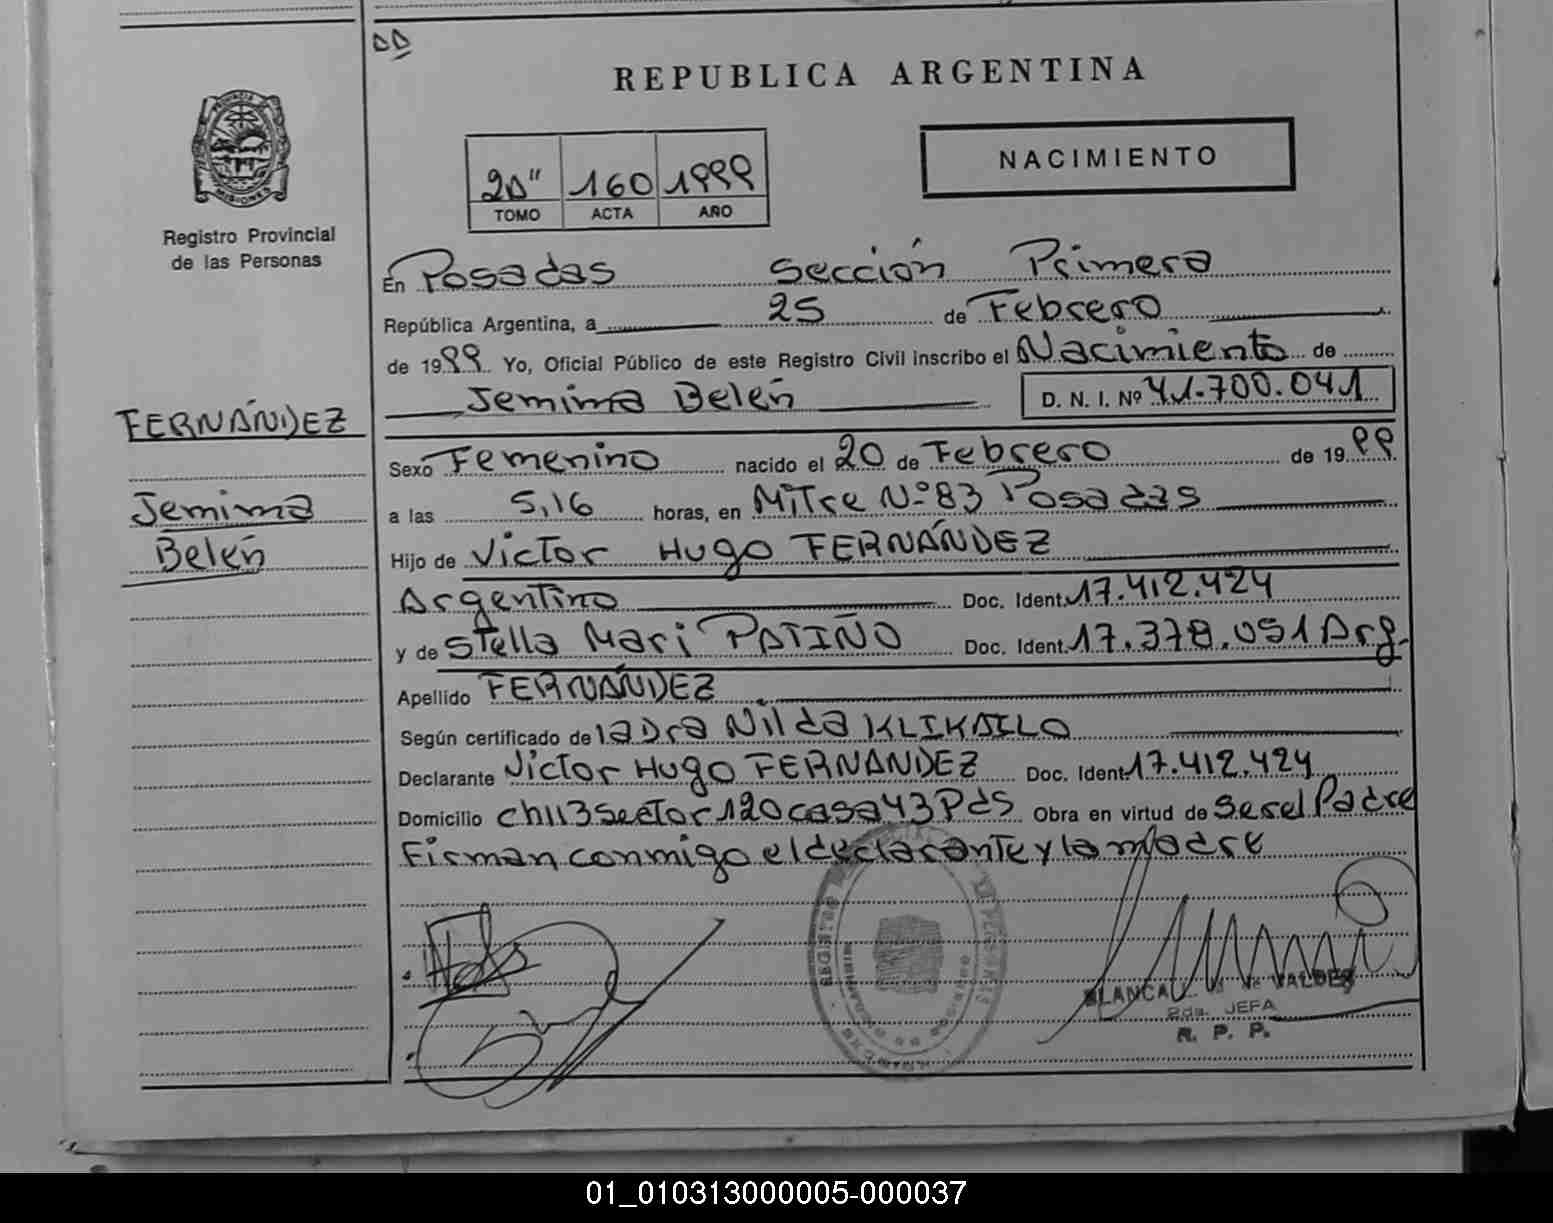 REPUBLICA ARGENTINA
Registro Provincial
de las Personas
160 1999
TOMO ACTA AÑO
NACIMIENTO
En Posadas Sección Primera
República Argentina, a 25 de Febrero
de 1999 Yo, Oficial Público de este Registro Civil inscribo el Nacimiento de
Jemima Belén D. N. I. Nº 41.700.041
FERNÁNDEZ
Jemima
Belén
Sexo Femenino nacido el 20 de Febrero de 1999
a las 5,16 horas, en Mitre Nº 83 Posadas
Hijo de Victor Hugo FERNÁNDEZ
Argentino Doc. Ident. 17.412.424
y de Stella Mari PATIÑO Doc. Ident. 17.378.051 Arg.
Apellido FERNÁNDEZ
Según certificado de la Dra Nilda KLIKAILO
Declarante Victor Hugo FERNANDEZ Doc. Ident. 17.412.424
Domicilio ch113 sector 120 casa 43 Pds Obra en virtud de ser el Padre
Firman conmigo el declarante y la madre
BLANCA VALDES
JEFA
R. P. P.
01_010313000005-000037